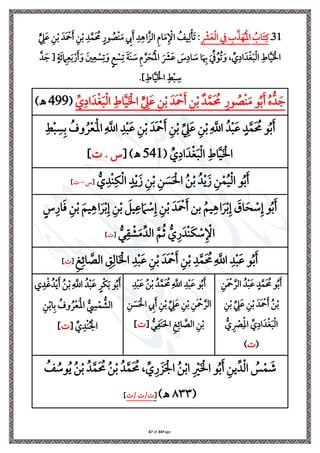 31. كِتَابُ الْمُهَذَّبِ فِي الْعَشْرِ: تَأْلِيفُ الْإِمَامِ الزَّاهِدِ أَبِي مَنْصُورٍ مُحَمَّدِ بْنِ أَحْمَدَ بْنِ عَلِيِّ
الْخَيَّاطِ الْبَغْدَادِيِّ، وَتُوُفِّيَ بِهَا سَادِسَ عَشَرَ الْمُحَرَّمِ سَنَةَ تِسْعٍ وَتِسْعِينَ وَأَرْبَعِمِائَةٍ [ جَدِّ
سِبْطِ الْخَيَّاطِ].
جَدُّهُ أَبُو مَنْصُورٍ مُحَمَّدُ بْنُ أَحْمَدَ بْنِ عَلِيٍّ الْخَيَّاطِ الْبَغْدَادِيِّ (499 هـ)
أَبُو مُحَمَّدٍ عَبْدُ اللَّهِ بْنِ عَلِيِّ بْنِ أَحْمَدَ بْنِ عَبْدِ اللَّهِ الْمَعْرُوفُ بِسِبْطِ
الْخَيَّاطِ الْبَغْدَادِيِّ (541 هـ) [س . ت]
أَبُو الْيُمْنِ زَيْدُ بْنُ الْحَسَنِ بْنِ زَيْدٍ الْكِنْدِيُّ [س – ت]
أَبُو إِسْحَاقَ إِبْرَاهِيمُ بن أَحْمَدَ بْنِ إِسْمَاعِيلَ بْنِ إِبْرَاهِيمَ بْنِ فَارِسٍ
الْإِسْكَنْدَرِيُّ ثُمَّ الدِّمَشْقِيُّ [ت]
أَبُو عَبْدِ اللَّهِ مُحَمَّدِ بْنِ أَحْمَدَ بْنِ عَبْدِ الْخَالِقِ الصَّائِغِ [ت]
أَبُو مُحَمَّدٍ عَبْدُ الرَّحْمَنِ بْنُ أَحْمَدَ بْنِ عَلِيِّ بْنِ الْبَغْدَادِيِّ الْمِصْرِيُّ (ت)
أَبُو عَبْدِ اللَّهِ مُحَمَّدُ بْنُ عَبْدِ الرَّحْمَنِ بْنِ عَلِيِّ بْنِ أَبِي الْحَسَنِ بْنِ الصَّائِغِ الْحَنَفِيُّ [ت]
أَبُو بَكْرٍ عَبْدُ اللَّهِ بْنُ أَيْدُغْدِي الشَّمْسِيُّ الْمَعْرُوفُ بِابْنِ الْجُنْدِيُّ [ت]
شَمْسُ الدِّينِ أَبُو الْخَيْرِ ابْنُ الْجَزَرِيِّ، مُحَمَّدُ بْنُ مُحَمَّدُ بْنُ يُوسُفُ
(٨٣٣ هـ) [ت/ت /ت]
47 of 34Page